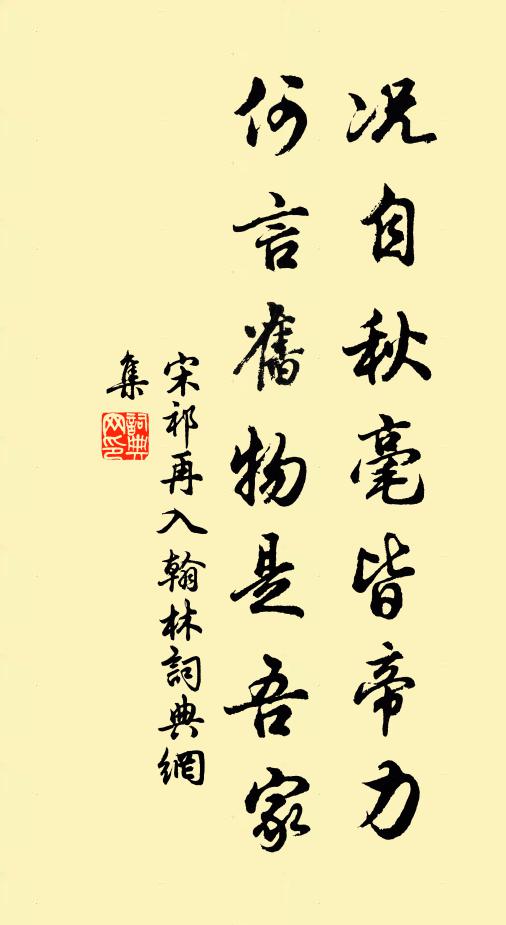 况自秋毫皆帝力
何言舊物是吾家
宋祁再入翰林詞典網
集
詞典
网印